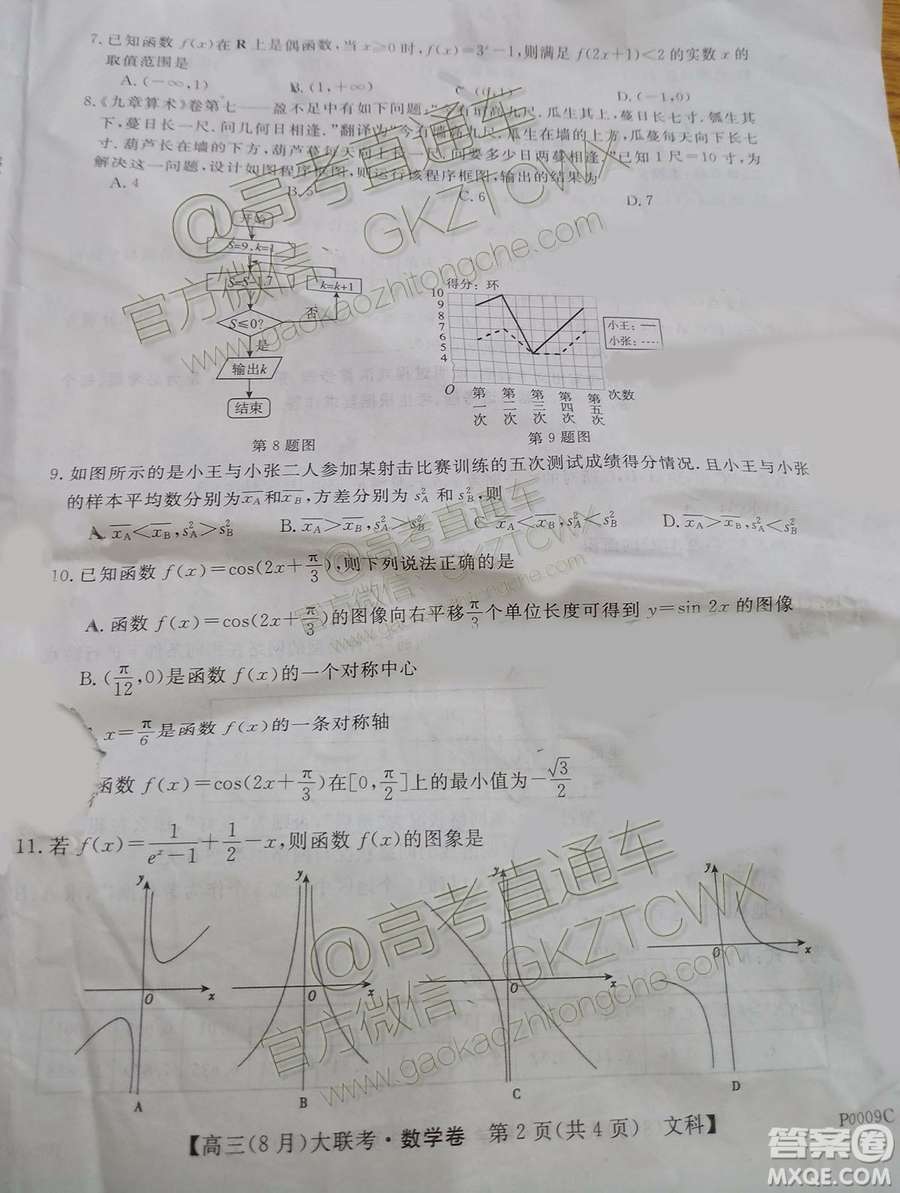 7. 已知函数 f(x)在 R 上是偶函数,当 x≥0 时,f(x)=3ˣ-1,则满足 f(2x+1)<2 的实数 x 的
取值范围是
A. (-∞,1) B. (1,+∞) D. (-1,0)
8.《九章算术》卷第七——盈不足中有如下问题:“今有垣高九尺. 瓜生其上,蔓日长七寸. 瓠生其
下,蔓日长一尺. 问几何日相逢.”翻译为“今有墙高九尺. 瓜生在墙的上方,瓜蔓每天向下长七
寸. 葫芦长在墙的下方,葫芦蔓每天向上长一尺. 问要多少日两蔓相逢.”已知 1 尺=10 寸,为
解决这一问题,设计如图程序框图,则运行该程序框图,输出的结果为
A. 4 B. 5 C. 6 D. 7
开始
S=9,k=1
k=k+1
否
S≤0?
是
输出k
结束
第 8 题图
得分:环
10
9
8
7
6
5
4
O
第一次 第二次 第三次 第四次 第五次 次数
小王:
小张:
第 9 题图
9. 如图所示的是小王与小张二人参加某射击比赛训练的五次测试成绩得分情况. 且小王与小张
的样本平均数分别为x̄_A和x̄_B,方差分别为 s²_A 和 s²_B,则
A. x̄_A<x̄_B,s²_A>s²_B B. x̄_A>x̄_B,s²_A>s²_B C. x̄_A<x̄_B,s²_A<s²_B D. x̄_A>x̄_B,s²_A<s²_B
10. 已知函数 f(x)=cos(2x+π/3),则下列说法正确的是
A. 函数 f(x)=cos(2x+π/3)的图像向右平移π/3个单位长度可得到 y=sin 2x 的图像
B. (π/12,0)是函数 f(x)的一个对称中心
x=π/6是函数 f(x)的一条对称轴
函数 f(x)=cos(2x+π/3)在[0,π/2]上的最小值为-√3/2
11. 若 f(x)=1/(eˣ-1)+1/2-x,则函数 f(x)的图象是
y O x A
y O x B
y O x C
y O x D
【高三(8月)大联考·数学卷 第 2 页(共 4 页) 文科】
P0009C
@高考直通车
官方微信:GKZTCWX
www.gaokaozhitongche.com
@高考直通车
官方微信:GKZTCWX
www.gaokaozhitongche.com
@高考直通车
官方微信:GKZTCWX
www.gaokaozhitongche.com
答案圈
MXQE.COM